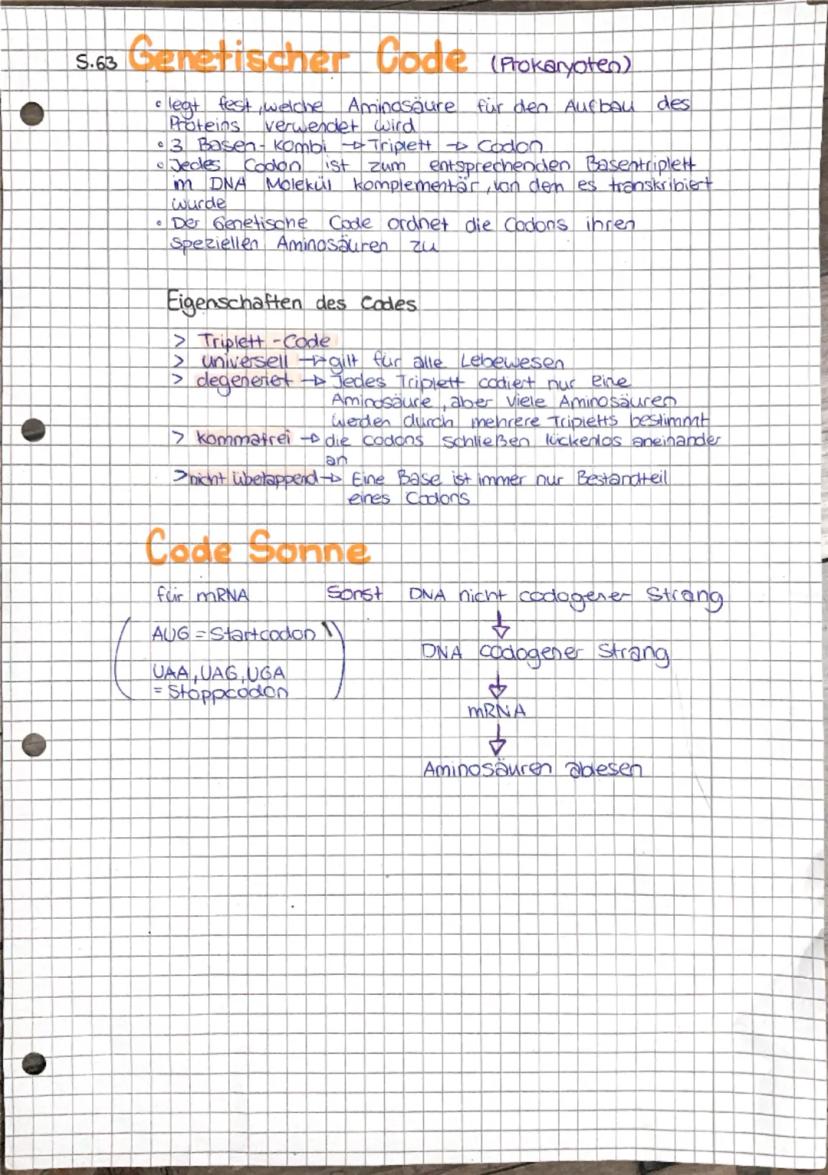 S.63 Genetischer Code (Prokaryoten)
• legt fest, welche Aminosäure für den Aufbau des
Proteins verwendet wird
• 3 Basen-Kombi → Triplett → Codon
• Jedes Codon ist zum entsprechenden Basentriplett
im DNA Molekül komplementär, von dem es transkribiert
wurde
• Der Genetische Code ordnet die Codons ihren
speziellen Aminosäuren zu
Eigenschaften des Codes
> Triplett-Code
> universell → gilt für alle Lebewesen
> degeneriet → Jedes Triplett codiert nur eine
Aminosäure, aber viele Aminosäuren
werden durch mehrere Tripletts bestimmt
> kommafrei → die codons schließen lückenlos aneinander
an
> nicht überlappend → Eine Base ist immer nur Bestandteil
eines Codons
Code Sonne
für mRNA Sonst DNA nicht codogener Strang
↓
(AUG = Startcodon DNA codogener Strang
UAA, UAG, UGA
= Stoppcodon)
↓
mRNA
↓
Aminosäuren ablesen